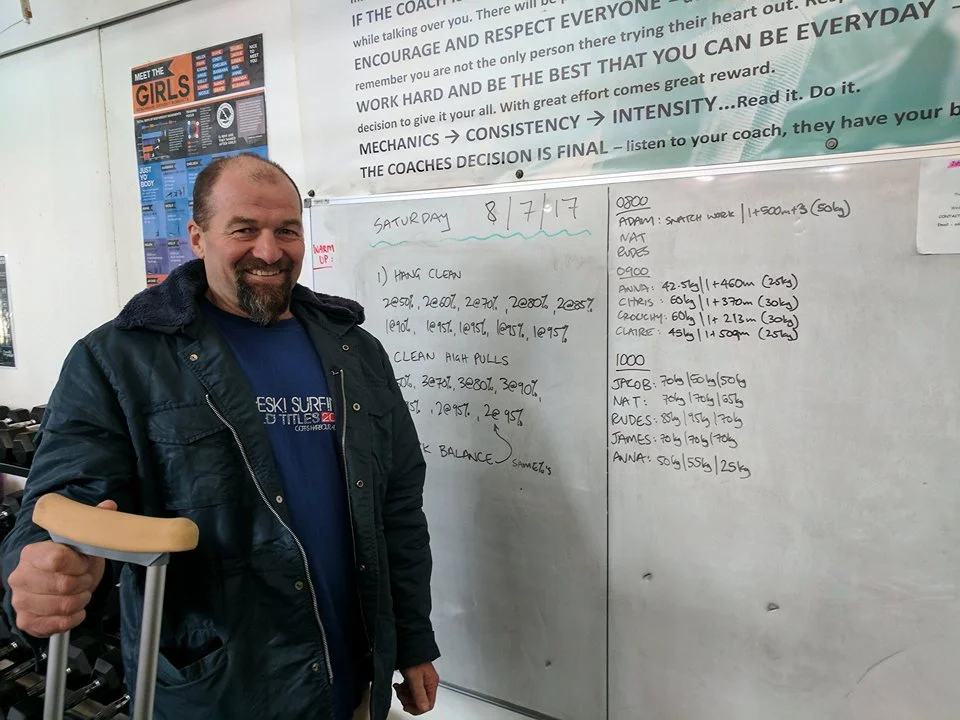 IF THE COACH
while talking over you. There will be
ENCOURAGE AND RESPECT EVERYONE –
remember you are not the only person there trying their heart out.
WORK HARD AND BE THE BEST THAT YOU CAN BE EVERYDAY –
decision to give it your all. With great effort comes great reward.
MECHANICS → CONSISTENCY → INTENSITY...Read it. Do it.
THE COACHES DECISION IS FINAL – listen to your coach, they have your b
MEET THE
GIRLS
NICE TO MEET YOU
JUST
YO
BODY
WARM
UP:
SATURDAY 8/7/17
1) HANG CLEAN
2@50%, 2@60%, 2@70%, 2@80%, 2@85%
1@90%, 1@95%, 1@95%, 1@95%, 1@95%
CLEAN HIGH PULLS
0%, 3@70%, 3@80%, 3@90%,
5%, 2@95%, 2@95%
K BALANCE
SAME %'S
0800
ADAM: SNATCH WORK | 1+500m+3 (50kg)
NAT
RUDES
0900
ANNA: 42.5kg | 1+460m (25kg)
CHRIS: 60kg | 1+370m (30kg)
CROUCHY: 60kg | 1+213m (30kg)
CLAIRE: 45kg | 1+509m (25kg)
1000
JACOB: 70kg | 50kg | 50kg
NAT: 70kg | 70kg | 65kg
RUDES: 85kg | 95kg | 70kg
JAMES: 70kg | 70kg | 70kg
ANNA: 50kg | 55kg | 25kg
ESKI SURFI
D TITLES 20
COFFS HARBOUR